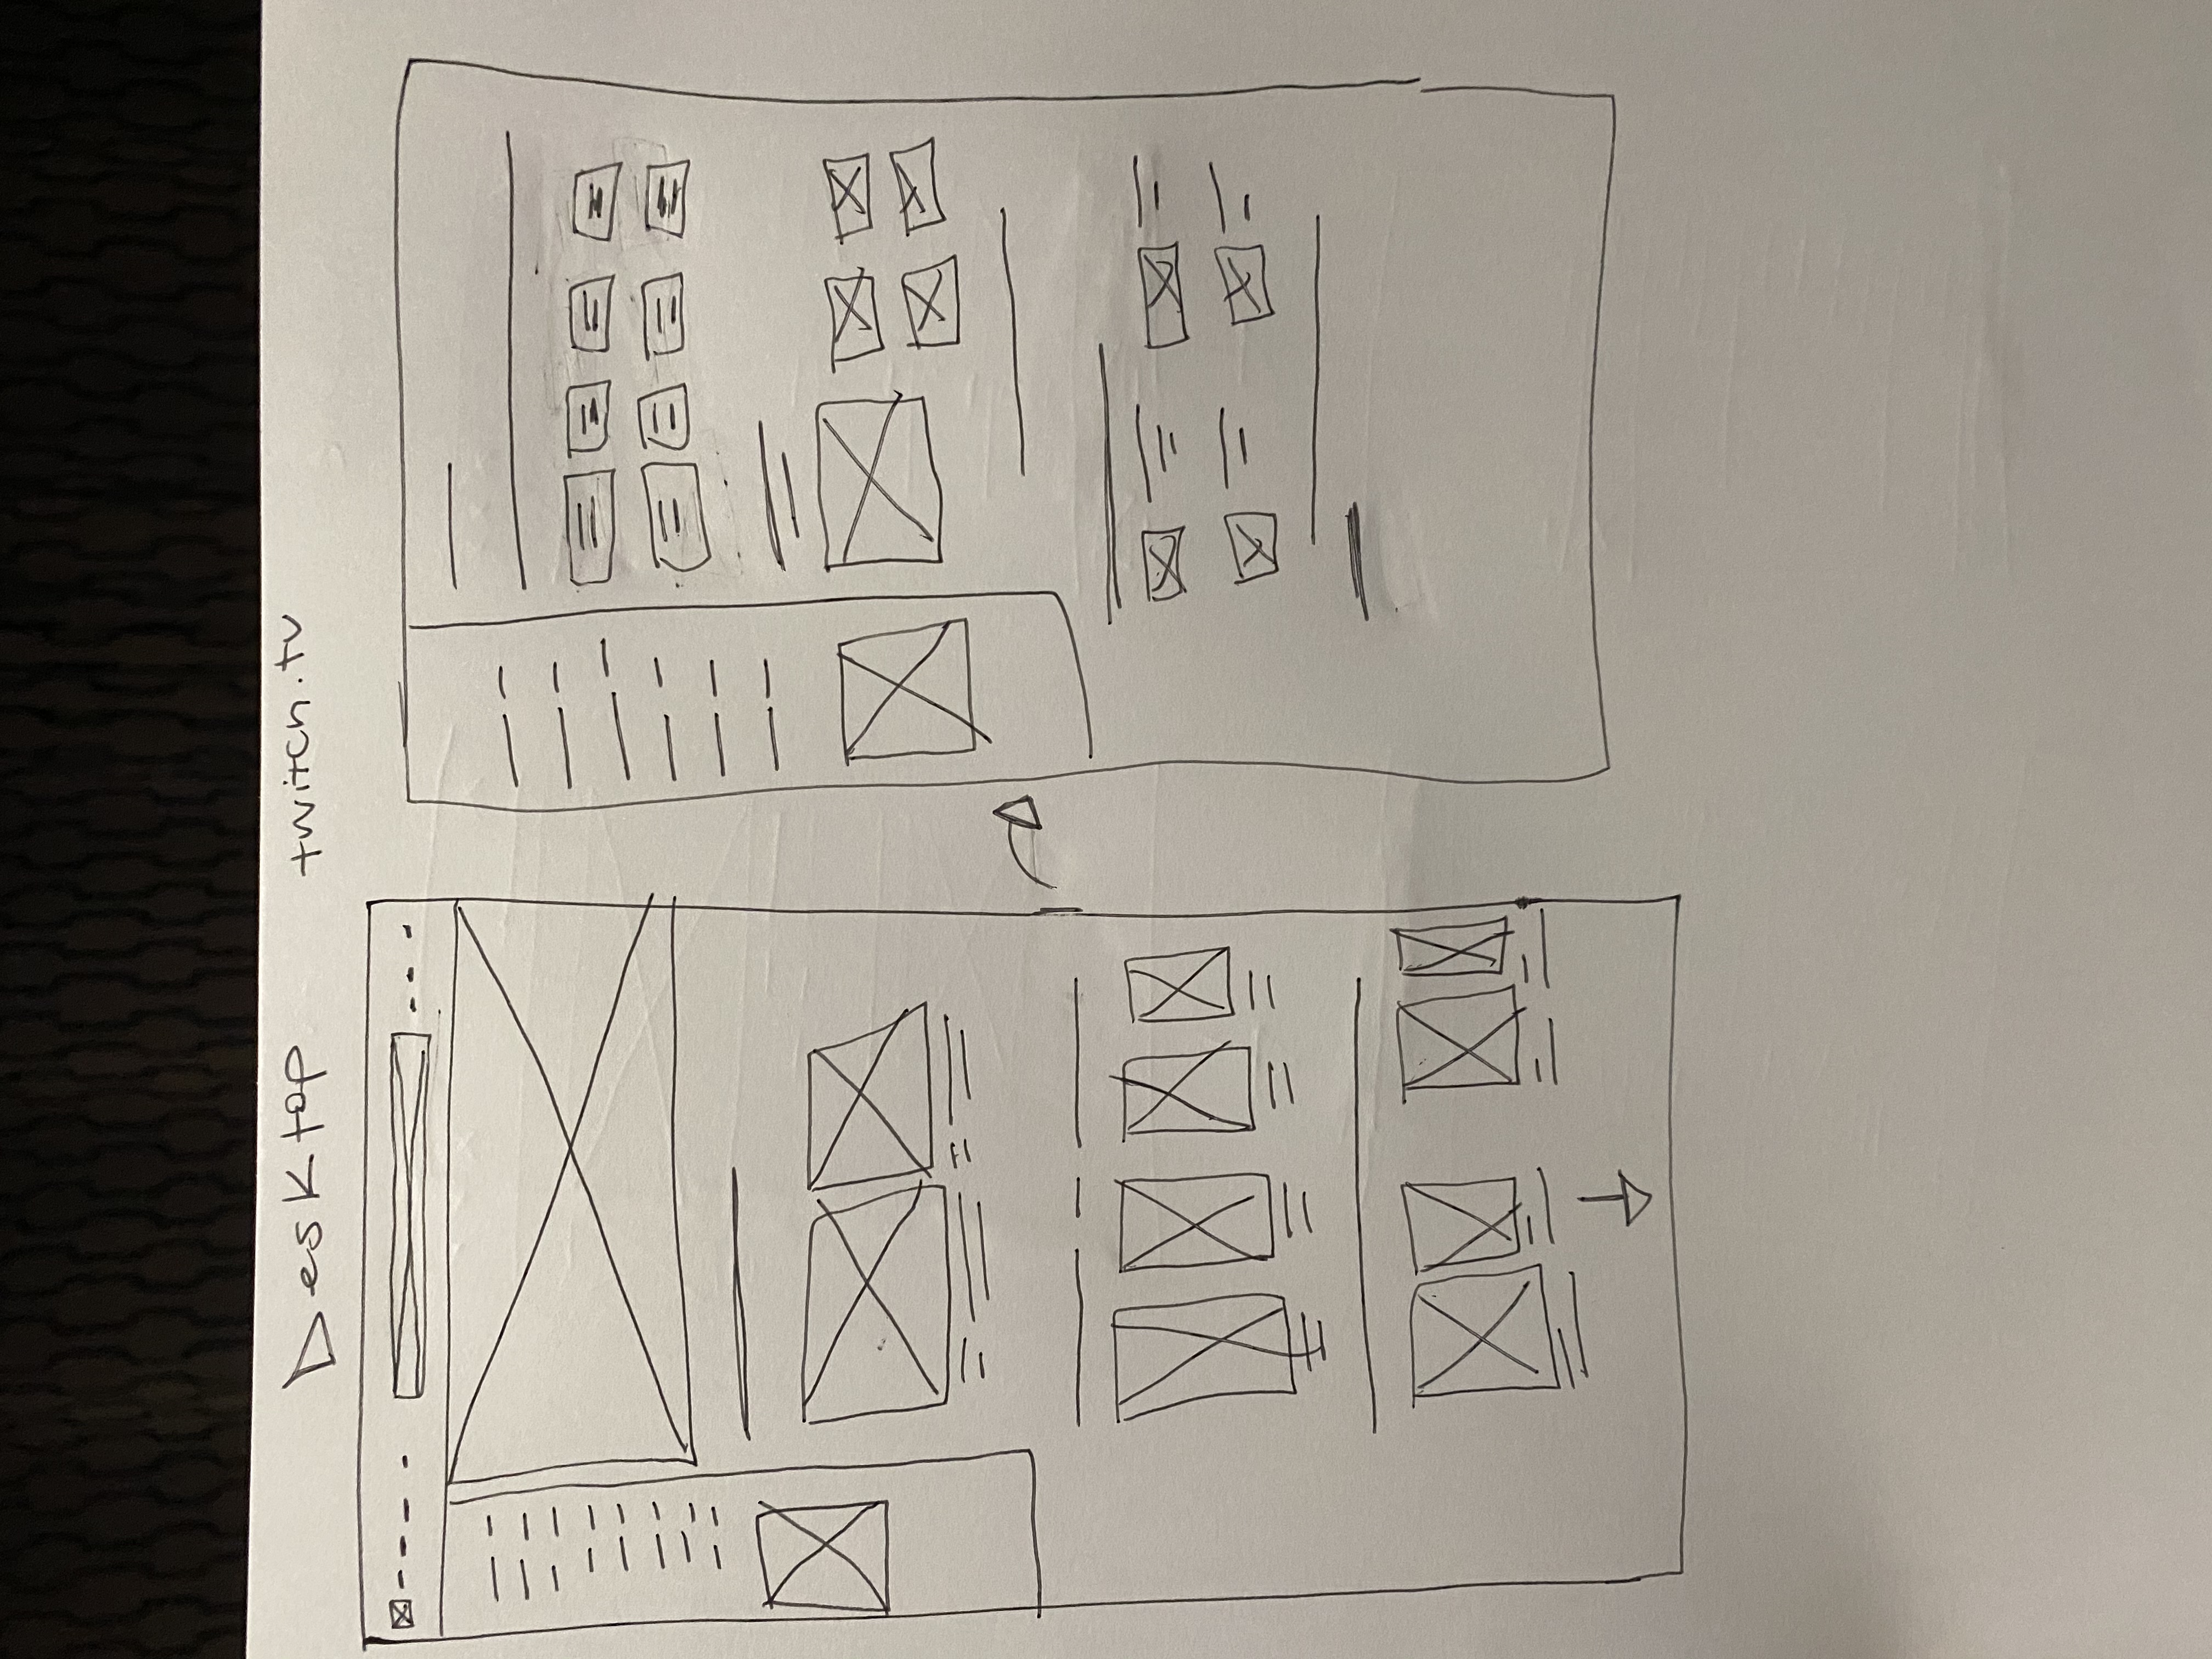 Desktop twitch.tv